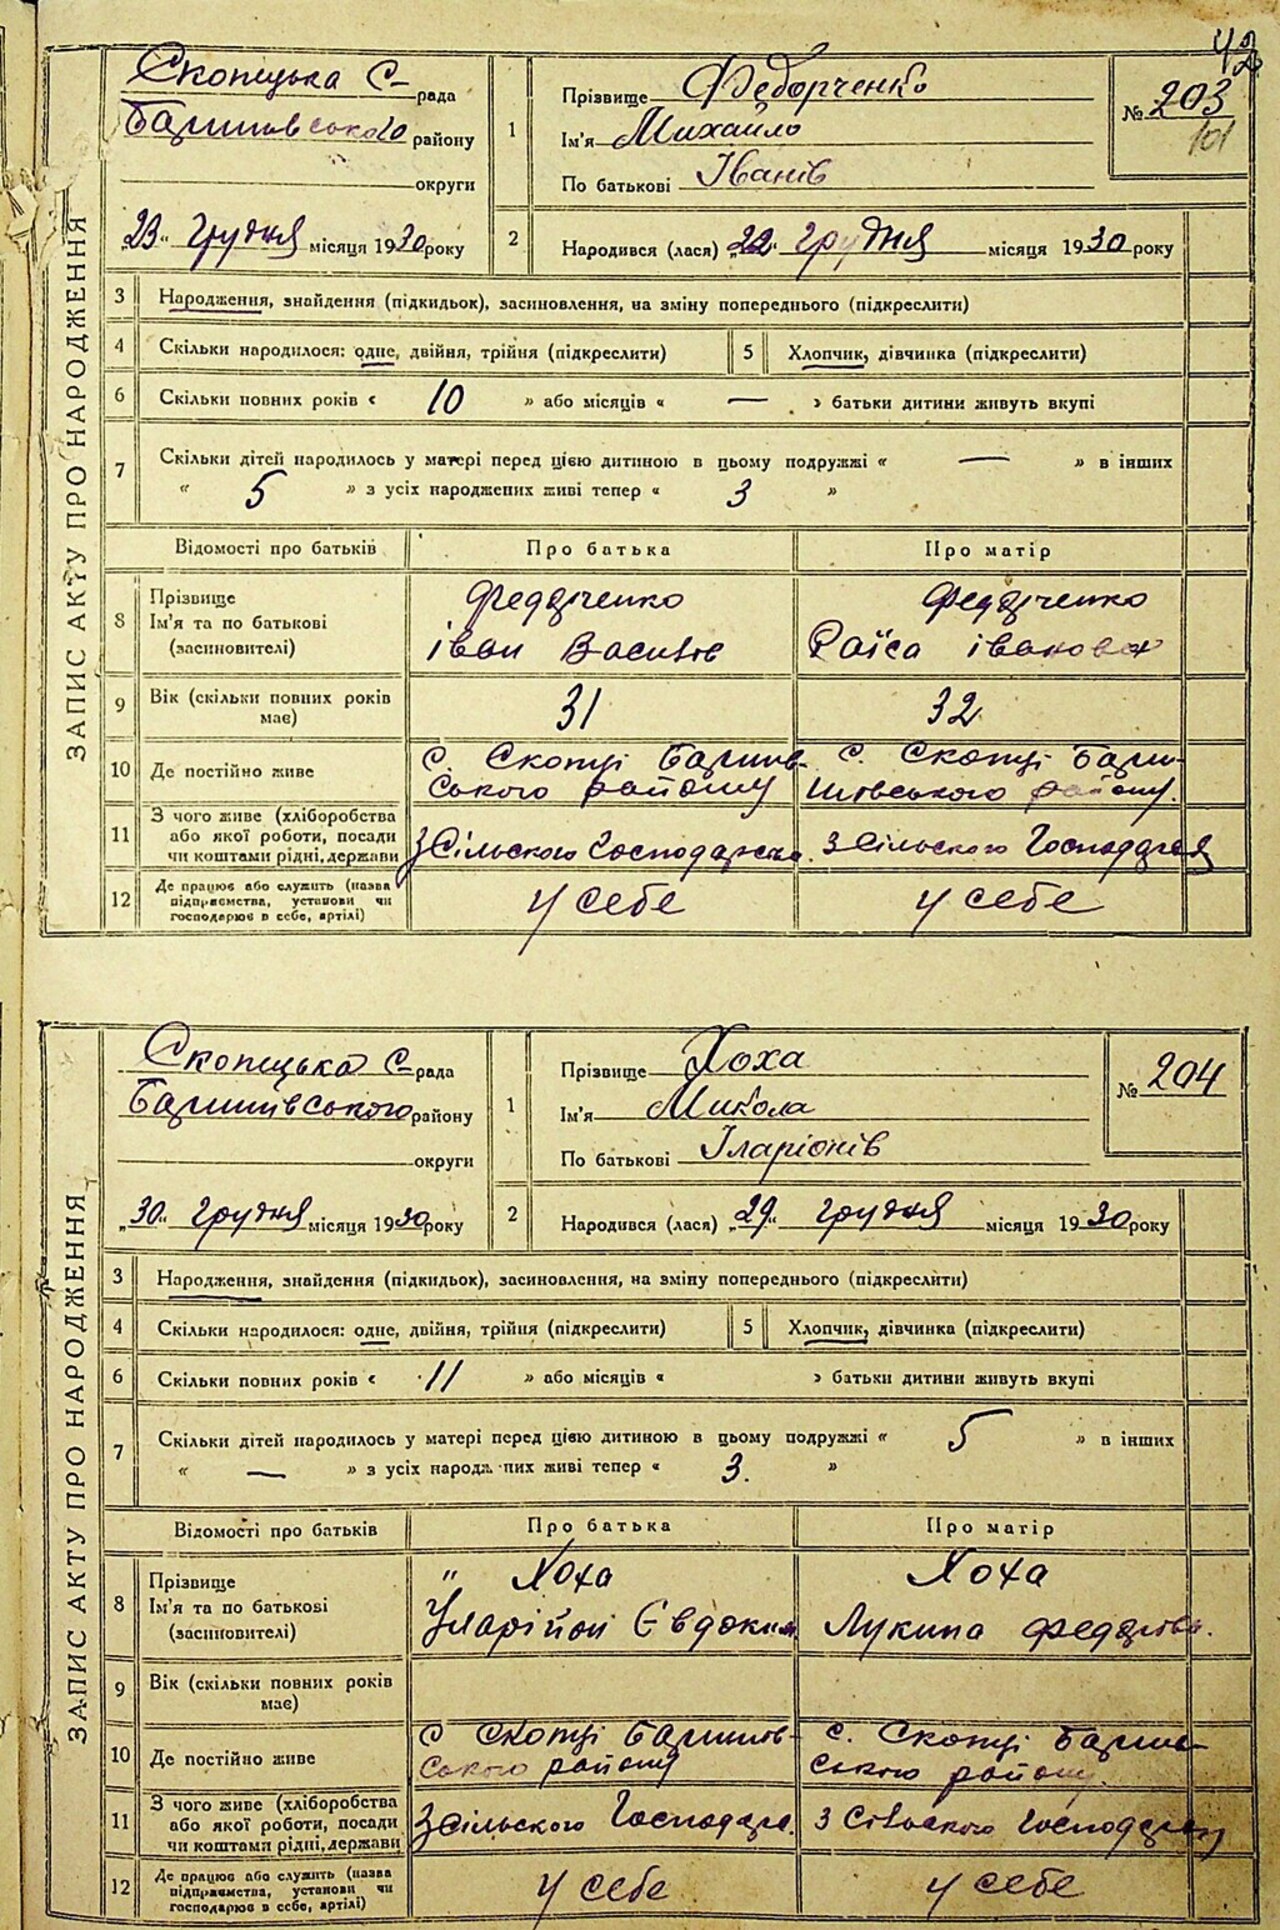 42
ЗАПИС АКТУ ПРО НАРОДЖЕННЯ
Скопецька С-рада
Баришівського району
округи
„23“ грудня місяця 1930 року
1
Прізвище Федорченко
Ім'я Михайло
По батькові Іванів
№ 203
101
2 Народився (лася) „22“ грудня місяця 1930 року
3 Народження, знайдення (підкидьок), засиновлення, на зміну попереднього (підкреслити)
4 Скільки народилося: одне, двійня, трійня (підкреслити) 5 Хлопчик, дівчинка (підкреслити)
6 Скільки повних років « 10 » або місяців « — » батьки дитини живуть вкупі
7 Скільки дітей народилось у матері перед цією дитиною в цьому подружжі « — » в інших
« 5 » з усіх народжених живі тепер « 3 »
Відомості про батьків Про батька Про матір
8 Прізвище
Ім'я та по батькові
(засиновителі)
Федрченко
Іван Василів
Федрченко
Раїса Іванова
9 Вік (скільки повних років
має)
31 32
10 Де постійно живе
с. Скопці Баришів-
ського району
с. Скопці Бари-
шівського району.
11 З чого живе (хліборобства
або якої роботи, посади
чи коштами рідні, держави
З Сільского Господарства. З Сільского Господарся
12 Де працює або служить (назва
підприємства, установи чи
господарює в себе, артілі)
у себе у себе
ЗАПИС АКТУ ПРО НАРОДЖЕННЯ
Скопецька С-рада
Баришівського району
округи
„30“ грудня місяця 1930 року
1
Прізвище Хоха
Ім'я Микола
По батькові Іларіонів
№ 204
2 Народився (лася) „29“ грудня місяця 1930 року
3 Народження, знайдення (підкидьок), засиновлення, на зміну попереднього (підкреслити)
4 Скільки народилося: одне, двійня, трійня (підкреслити) 5 Хлопчик, дівчинка (підкреслити)
6 Скільки повних років « 11 » або місяців « » батьки дитини живуть вкупі
7 Скільки дітей народилось у матері перед цією дитиною в цьому подружжі « 5 » в інших
« — » з усіх народжених живі тепер « 3. »
Відомості про батьків Про батька Про матір
8 Прізвище
Ім'я та по батькові
(засиновителі)
" Хоха
Іларійон Євдоким
Хоха
Лукина
9 Вік (скільки повних років
має)
10 Де постійно живе
с Скопці Баришів-
ського району
с. Скопці Барише-
ського району.
11 З чого живе (хліборобства
або якої роботи, посади
чи коштами рідні, держави
З Сільского Господарс. З Сільского
12 Де працює або служить (назва
підприємства, установи чи
господарює в себе, артілі)
у себе у себе